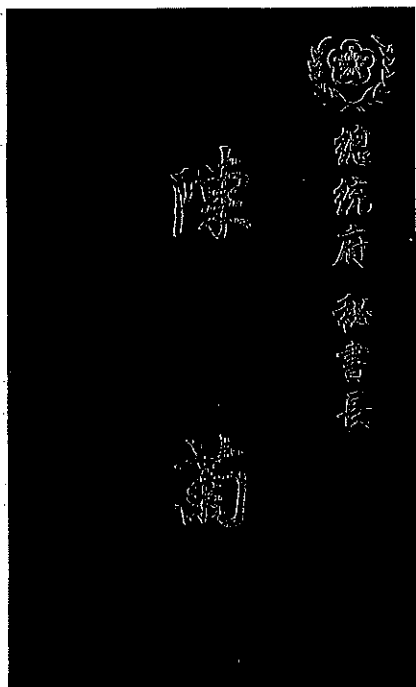 總統府 秘書長
陳菊